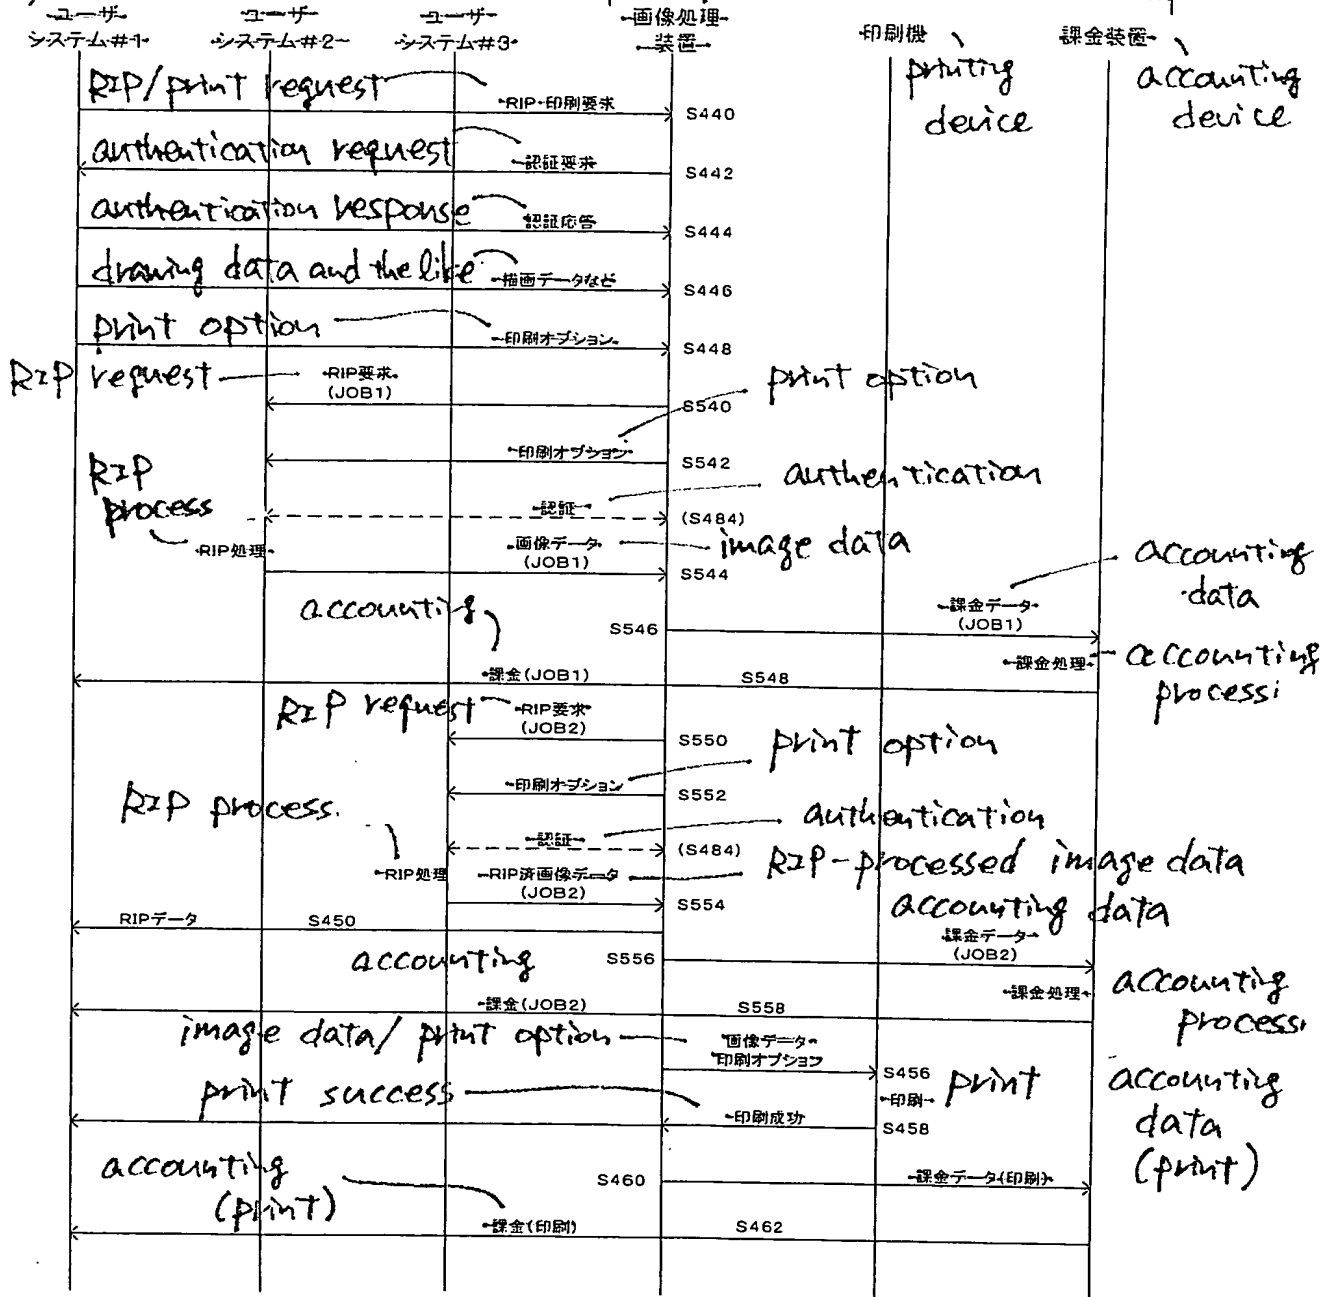 ユーザー
システム#1
ユーザー
システム#2
ユーザー
システム#3
画像処理
装置
印刷機
課金装置
printing
device
accounting
device
RIP/print request
RIP・印刷要求
S440
authentication request
認証要求
S442
authentication response
認証応答
S444
drawing data and the like
描画データなど
S446
print option
印刷オプション
S448
RIP request
RIP要求
(JOB1)
S540
print option
印刷オプション
S542
RIP
process
authentication
認証
(S484)
RIP処理
画像データ
(JOB1)
image data
S544
accounting
data
課金データ
(JOB1)
S546
課金処理
accounting
課金(JOB1)
S548
RIP request
RIP要求
(JOB2)
S550
print option
印刷オプション
S552
RIP process.
authentication
認証
(S484)
RIP処理
RIP済画像データ
(JOB2)
RIP-processed image data
S554
accounting data
RIPデータ
S450
課金データ
(JOB2)
accounting
S556
課金処理
accounting
課金(JOB2)
S558
image data/ print option
画像データ
印刷オプション
S456
印刷
print
print success
印刷成功
S458
accounting
data
(print)
accounting
(print)
S460
課金データ(印刷)
課金(印刷)
S462